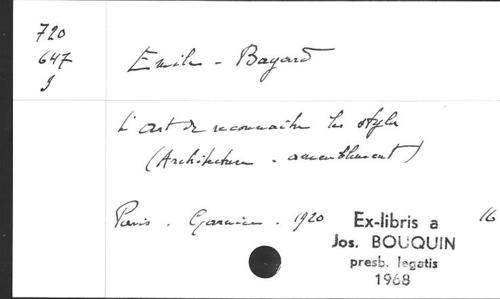 720
647
Emile - Bayard
L'art de reconnaître les styles
(Architecture - ameublement)
Paris - Garnier - 1920
16
Ex-libris a
Jos. BOUQUIN
presb. legatis
1968